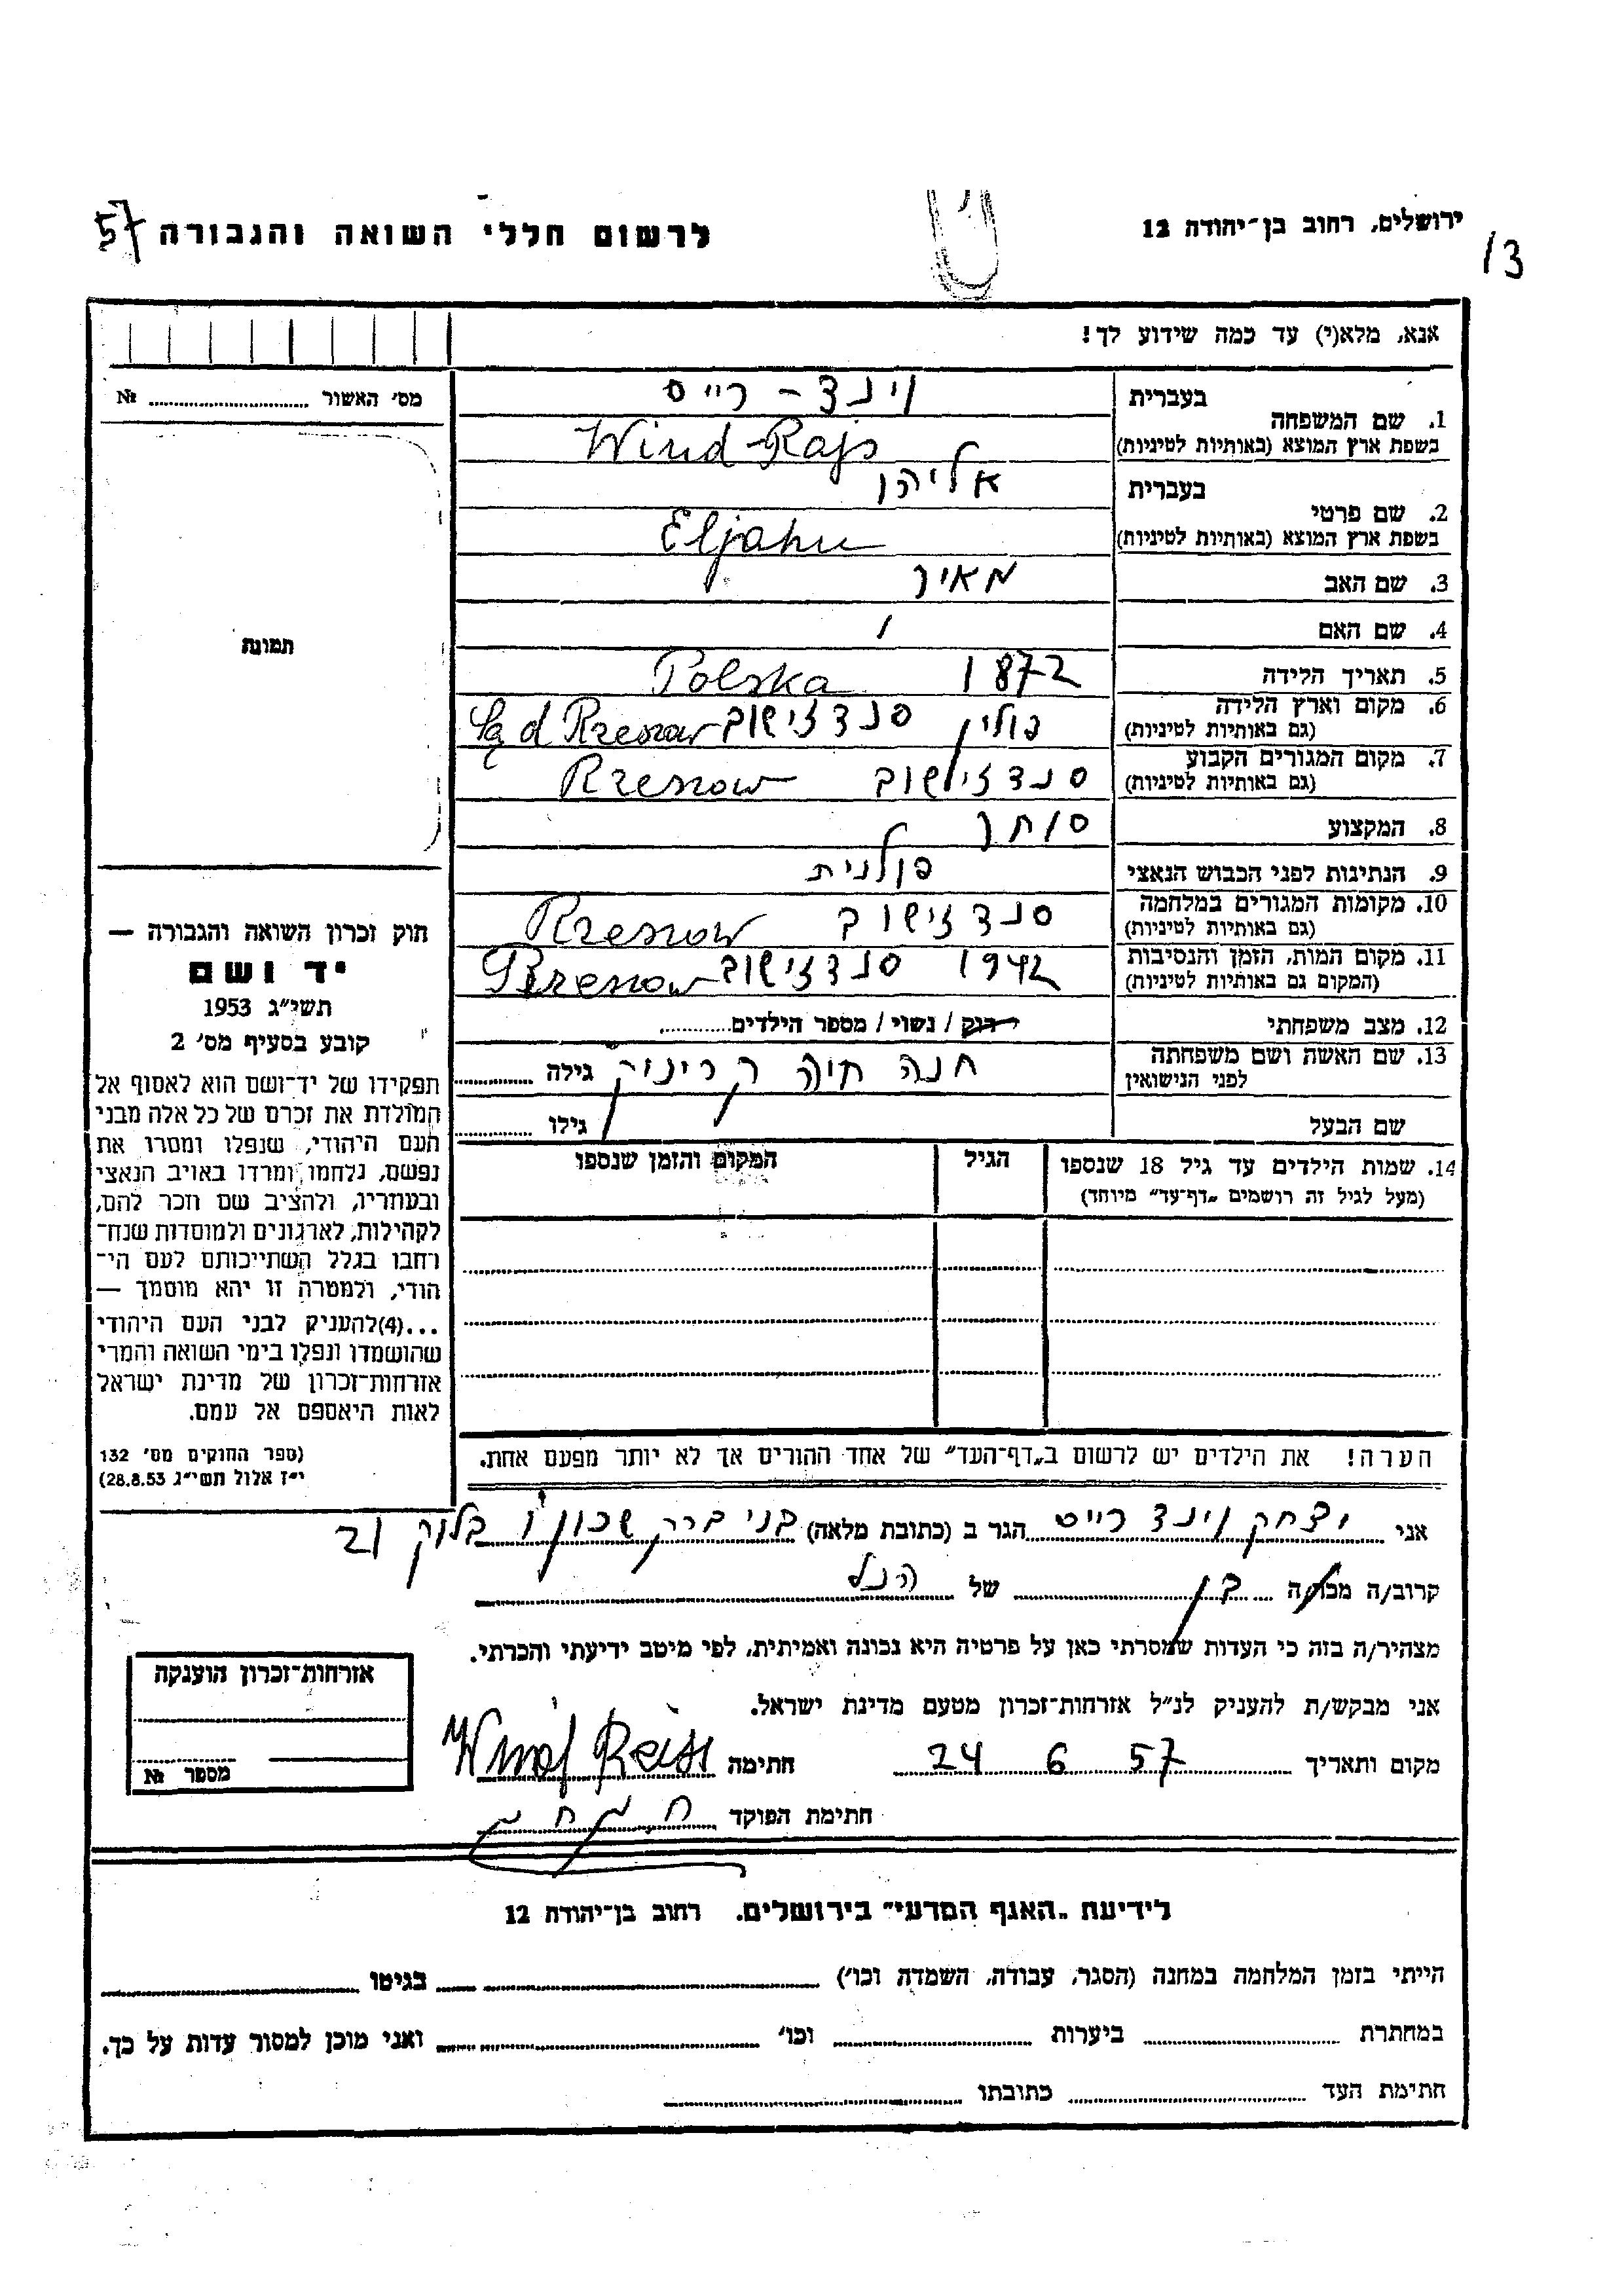 ירושלים, רחוב בן־יהודה 12
לרשום חללי השואה והגבורה 57
13
אנא, מלא(י) עד כמה שידוע לך!
מס׳ האשור ........ №
תמונה
1. שם המשפחה
בעברית
וינד - רייס
בשפת ארץ המוצא (באותיות לטיניות)
Wind-Rajs
2. שם פרטי
בעברית
אליהו
בשפת ארץ המוצא (באותיות לטיניות)
Eljahu
3. שם האב
מאיר
4. שם האם
5. תאריך הלידה
1872 Polska
6. מקום וארץ הלידה
(גם באותיות לטיניות)
פולין סנדזישוב Rzeszow
7. מקום המגורים הקבוע
(גם באותיות לטיניות)
סנדזישוב Rzeszow
8. המקצוע
סוחר
9. הנתינות לפני הכבוש הנאצי
פולנית
10. מקומות המגורים במלחמה
(גם באותיות לטיניות)
סנדזישוב Rzeszow
11. מקום המות, הזמן והנסיבות
(המקום גם באותיות לטיניות)
1942 סנדזישוב Rzeszow
12. מצב משפחתי
רווק / נשוי / מספר הילדים........
13. שם האשה ושם משפחתה
לפני הנישואין
חנה חיה גילה ........
שם הבעל
גילו ........
14. שמות הילדים עד גיל 18 שנספו
(מעל לגיל זה רושמים „דף־עד״ מיוחד)
הגיל
המקום והזמן שנספו
חוק זכרון השואה והגבורה —
יד ושם
תשי״ג 1953
קובע בסעיף מס׳ 2
תפקידו של יד־ושם הוא לאסוף אל
המולדת את זכרם של כל אלה מבני
העם היהודי, שנפלו ומסרו את
נפשם, נלחמו ומרדו באויב הנאצי
ובעוזריו, ולהציב שם וזכר להם,
לקהילות, לארגונים ולמוסדות שנח־
רבו בגלל השתייכותם לעם הי־
הודי, ולמטרה זו יהא מוסמך —
...(4)להעניק לבני העם היהודי
שהושמדו ונפלו בימי השואה והמרי
אזרחות־זכרון של מדינת ישראל
לאות היאספם אל עמם.
(ספר החוקים מס׳ 132
י״ז אלול תשי״ג 28.8.53)
הערה! את הילדים יש לרשום ב„דף־העד״ של אחד ההורים אך לא יותר מפעם אחת.
אני יצחק וינד רייס הגר ב (כתובת מלאה) בני ברק שכון ו בלוק 21
קרוב/ה מכר/ה בן של הנ״ל
מצהיר/ה בזה כי העדות שמסרתי כאן על פרטיה היא נכונה ואמיתית, לפי מיטב ידיעתי והכרתי.
אני מבקש/ת להעניק לנ״ל אזרחות־זכרון מטעם מדינת ישראל.
מקום ותאריך 24 6 57 חתימה Wind Reiss
חתימת הפוקד
אזרחות־זכרון הוענקה
מספר №
לידיעת „האגף המדעי״ בירושלים, רחוב בן־יהודה 12
הייתי בזמן המלחמה במחנה (הסגר, עבודה, השמדה וכו׳) ........ בגיטו ........
במחתרת ........ ביערות ........ וכו׳ ........ ואני מוכן למסור עדות על כך.
חתימת העד ........ כתובתו ........